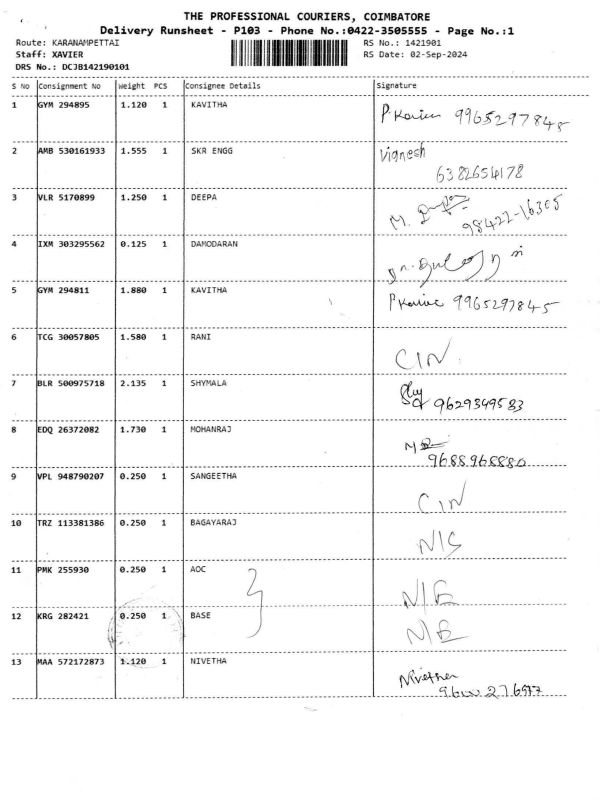 THE PROFESSIONAL COURIERS, COIMBATORE
Delivery Runsheet - P103 - Phone No.:0422-3505555 - Page No.:1
Route: KARANAMPETTAI RS No.: 1421901
Staff: XAVIER RS Date: 02-Sep-2024
DRS No.: DCJB142190101
S No Consignment No Weight PCS Consignee Details Signature
1 GYM 294895 1.120 1 KAVITHA 9965297845
2 AMB 530161933 1.555 1 SKR ENGG Vignesh
6382654178
3 VLR 5170899 1.250 1 DEEPA M.
98422-16305
4 IXM 303295562 0.125 1 DAMODARAN
5 GYM 294811 1.880 1 KAVITHA 9965297845
6 TCG 30057805 1.580 1 RANI CIN
7 BLR 500975718 2.135 1 SHYMALA 9629349583
8 EDQ 26372082 1.730 1 MOHANRAJ M
9688968880
9 VPL 948790207 0.250 1 SANGEETHA CIN
10 TRZ 113381386 0.250 1 BAGAYARAJ N/S
11 PMK 255930 0.250 1 AOC N/E
12 KRG 282421 0.250 1 BASE N/E
13 MAA 572172873 1.120 1 NIVETHA Nivetha